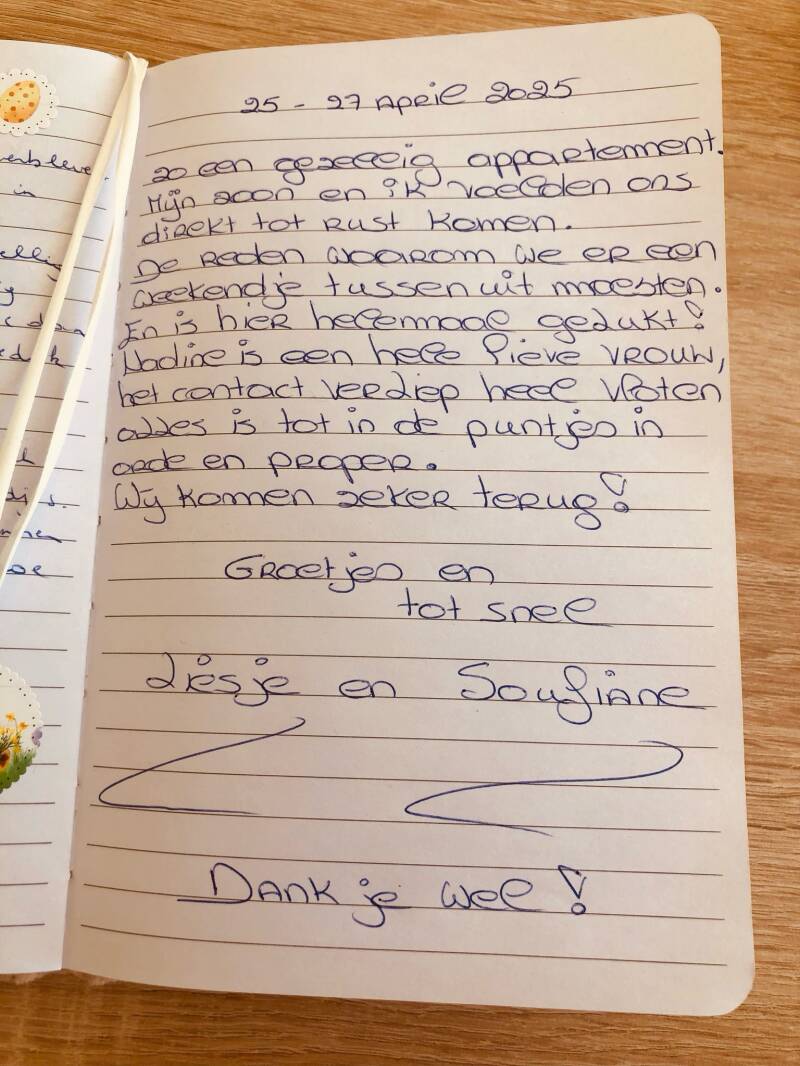 erbleve
in
ellig
25 - 27 April 2025
zo een gezellig appartement.
Mijn zoon en ik voelden ons
direkt tot rust komen.
De reden waarom we er een
weekendje tussen uit moesten.
En is hier helemaal gelukt!
Nadine is een hele lieve vrouw,
het contact verliep heel vloten
alles is tot in de puntjes in
orde en proper.
Wij komen zeker terug!
Groetjes en
tot snel
Liesje en Soufiane
Dank je wel!